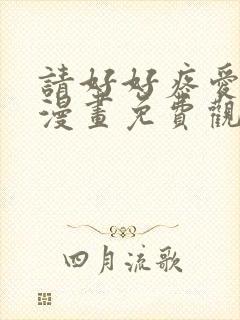 請好好疼愛
漫畫免費觀
四月流歌